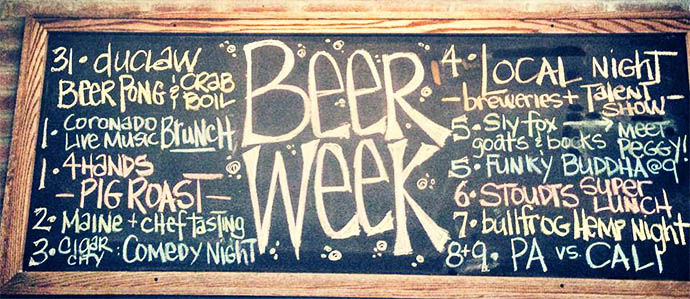 31 · duclaw
BEER PONG & CRAB BOIL
1 · CORONADO
LIVE MUSIC BRUNCH
1 · 4HANDS
- PIG ROAST -
2 · Maine + chef TASTING
3 · CIGAR CITY : COMEDY NIGHT
BEER
WEEK
4 · LOCAL NIGHT
- breweries + TALENT SHOW -
5 · Sly fox → MEET
goats & bocks PEGGY!
5 · FUNKY BUDDHA @ 9
6 · STOUDTS SUPER LUNCH
7 · bullfrog HEMP Night
8+9 · PA vs. CALI